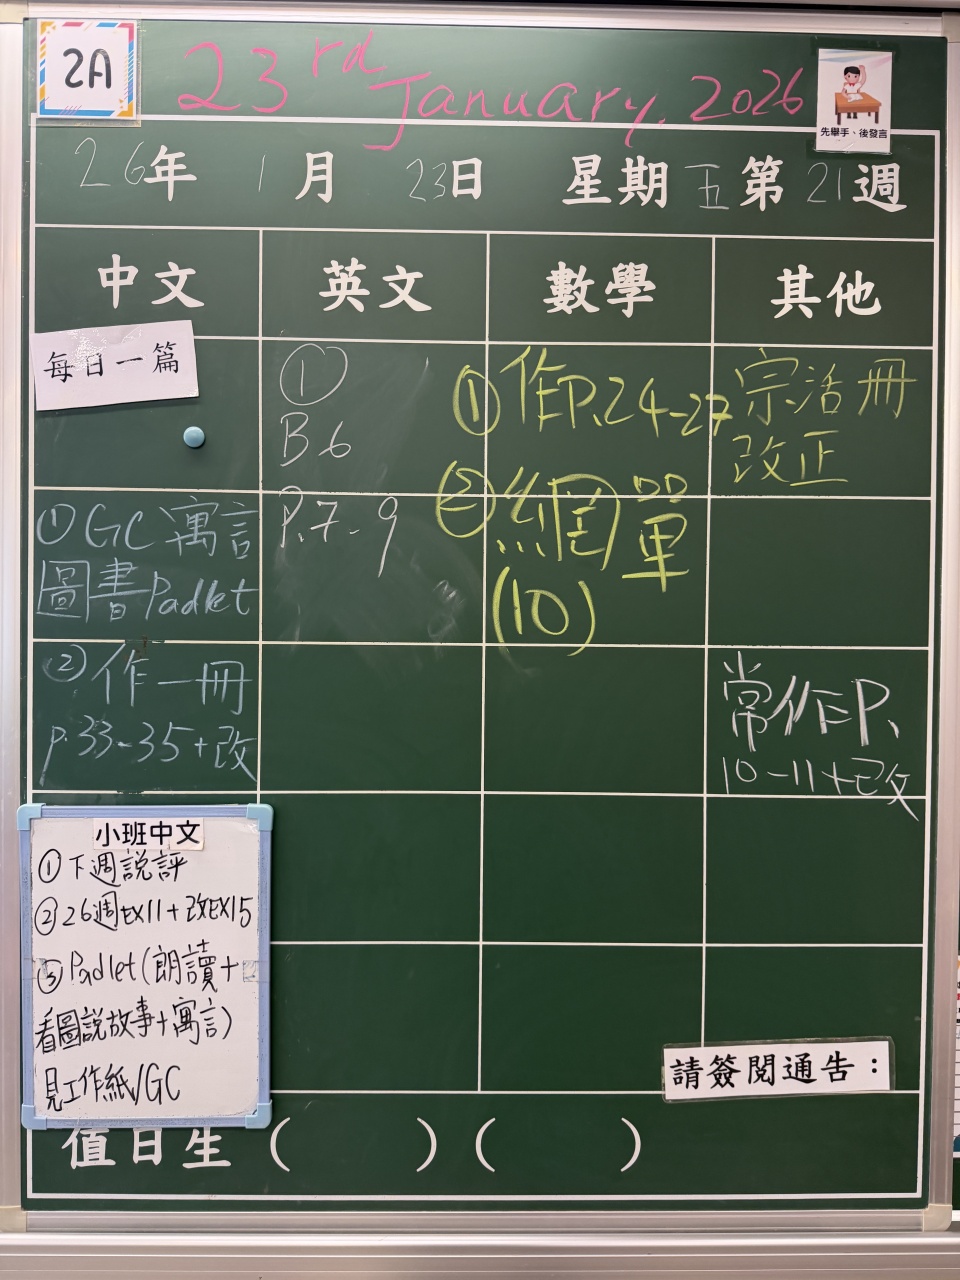 2A
23rd January, 2026
先舉手、後發言
26年 1月 23日 星期五 第21週
中文
英文
數學
其他
每日一篇
①GC寓言
圖書Padlet
②作一冊
p.33-35+改
①
B6
P.7-9
①作P.24-27
②網單
(10)
宗活冊
改正
常作P.
10-11+改
小班中文
①下週說評
②26週EX11+改EX15
③Padlet(朗讀+
看圖說故事+寓言)
見工作紙/GC
請簽閱通告：
值日生 ( ) ( )